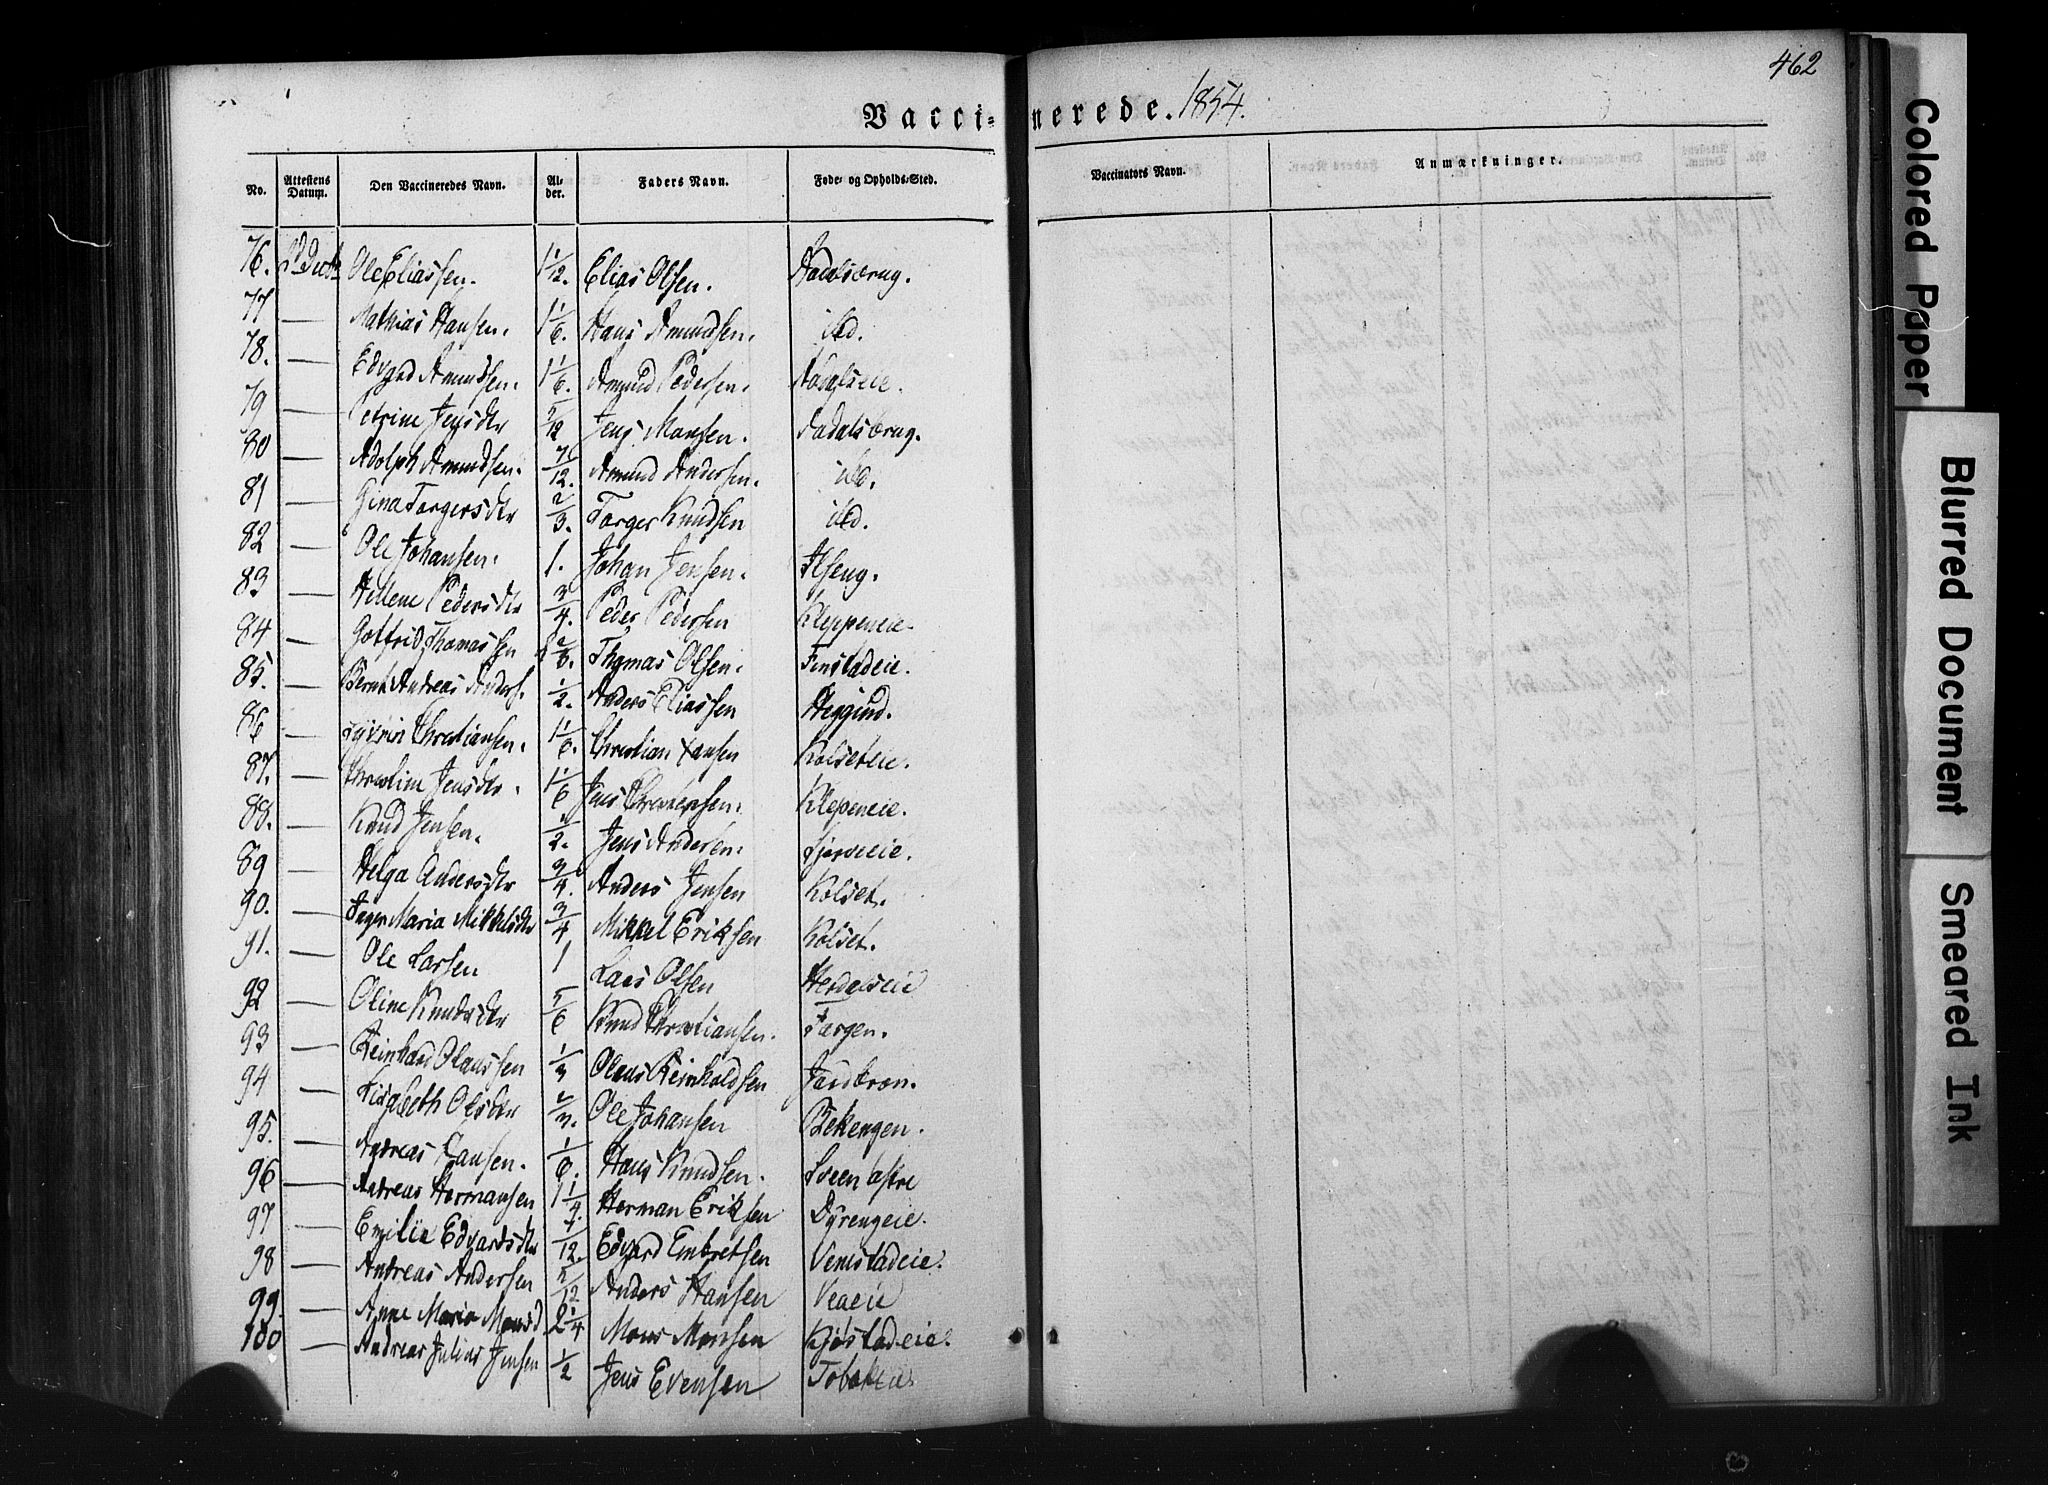 462
Vaccinerede. 1854.
No. Attestens Datum. Den Vaccineredes Navn. Alder. Faders Navn. Føde- og Opholds-Sted. Vaccinators Navn. Anmærkninger.
76. Ole Eliassen. 1 1/12. Elias Olsen. Aadalsbrug.
77 — Mathias Hansen. 1 1/6. Hans Amundsen. ibd.
78. — Edvard Amundsen. 1 1/6. Amund Pedersen. Aadalseie.
79 — Petrine Jensdtr 5/12 Jens Monsen. Aadalsbrug.
80 — Adolph Amundsen. 7/12. Amund Andersen. ibd.
81 — Gina Torgersdtr 2/3. Torger Knudsen ibd.
82 — Ole Johansen. 1. Johan Jensen. Ilseng.
83 — Hellene Pedersdtr 3/4. Peder Pedersen Kleppeneie.
84 — Gotfrid Thomassen Thomas Olsen. Finstadeie.
85. — Bernt Andreas Anders. 1/2. Anders Eliassen
86 — Christiansen. 1 1/6. Christian Hansen Kolseteie.
87. — Christine Jensdtr. 1 1/6 Jens Christensen. Klepeneie.
88. — Knud Jensen. 1/2. Jens Andersen.
89 — Helga Andersdtr 3/4. Anders Jensen Kolset.
90. — Inger Maria Mikkelsdtr 3/4 Mikkel Eriksen Kolset.
91. — Ole Larsen 1 Lars Olsen
92 — Oline Knudsdtr 5/6 Knud Christiansen. Fargen.
93 — Reinhard Olaussen 1/3 Olaus Reinholdsen
94 — Lisabeth Olsdtr 2/3. Ole Johansen Bekengen.
95. — Andreas Hansen. 1/6. Hans Knudsen. Sveen østre
96 — Andreas Hermansen 1 1/4. Herman Eriksen Dyrengeie.
97 — Emilie Edvardsdtr 7/12. Edvard Embretsen Vemstadeie.
98 — Andreas Andersen 5/12 Anders Hansen
99. — Anne Maria Monsd 2 1/4 Mons Monsen Kjøstadeie.
100 — Andreas Julius Jensen 1/2 Jens Evensen
Colored Paper
Blurred Document
Smeared Ink